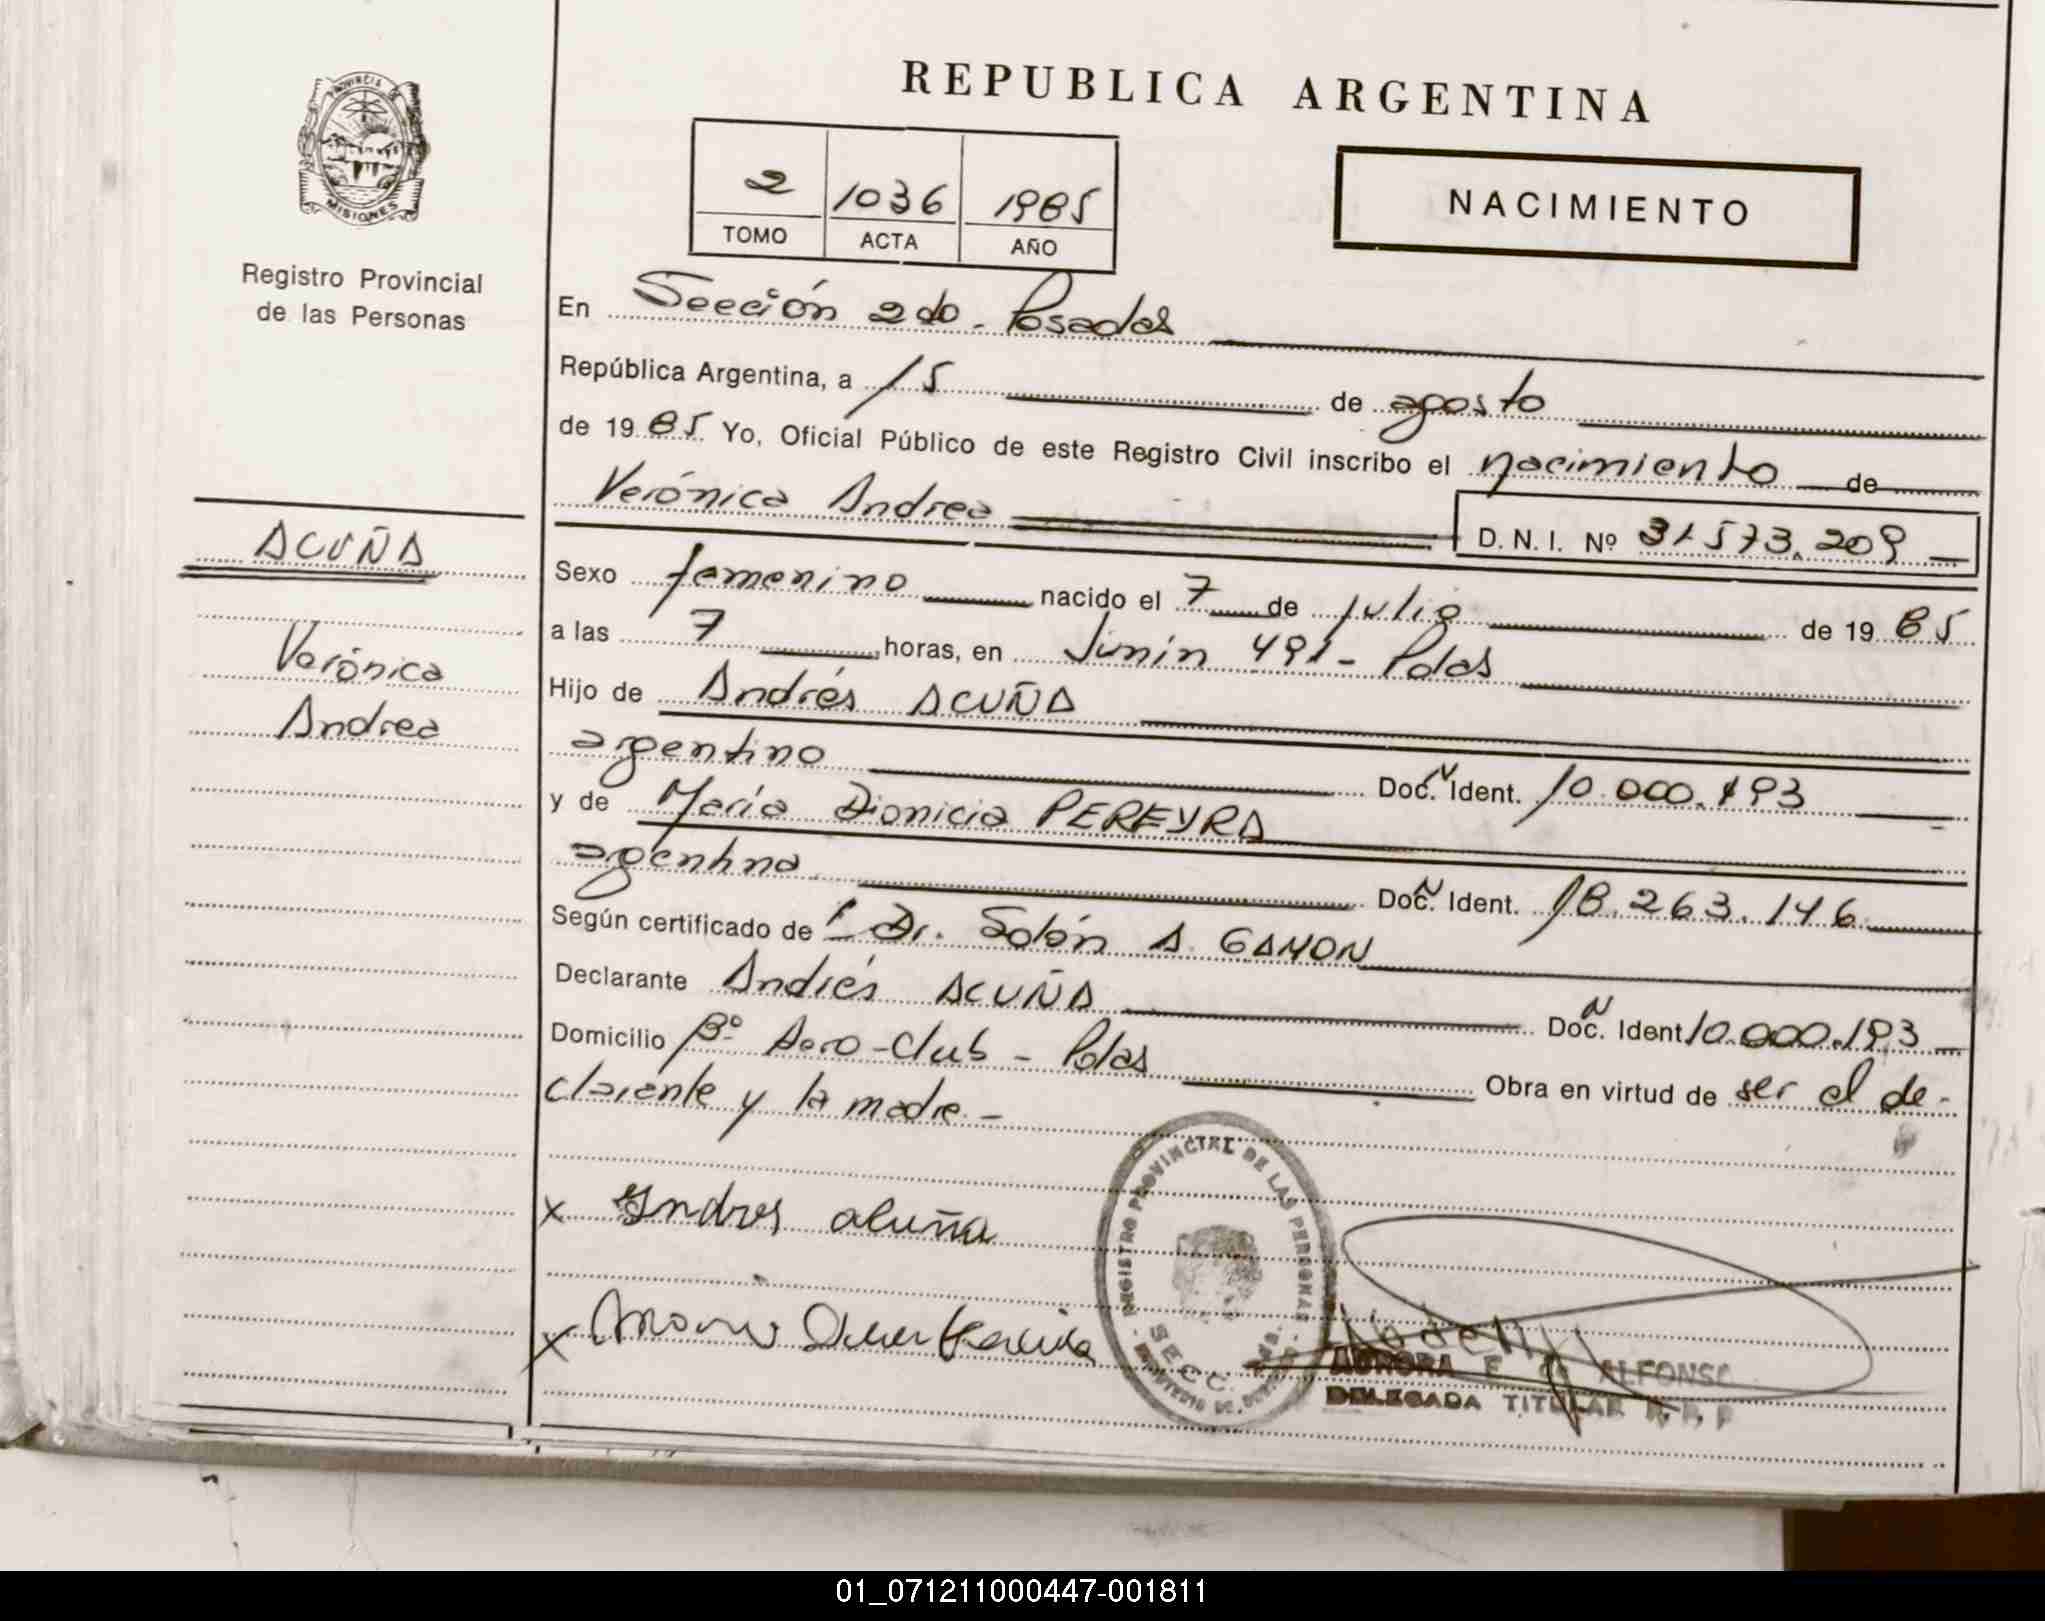 REPUBLICA ARGENTINA
PROVINCIA DE
MISIONES
Registro Provincial
de las Personas
2 1036 1985
TOMO ACTA AÑO
NACIMIENTO
En Sección 2do. Posadas
República Argentina, a 15 de agosto
de 1985 Yo, Oficial Público de este Registro Civil inscribo el nacimiento de
Verónica Andrea
D. N. I. Nº 31.573.209
ACUÑA
Verónica
Andrea
Sexo femenino nacido el 7 de julio de 1985
a las 7 horas, en Junín 491 - Pdas
Hijo de Andrés ACUÑA
argentino Doc. N Ident. 10.000.193
y de María Dionicia PEREYRA
argentina Doc. N Ident. 18.263.146
Según certificado de Dr. Solón A. GAMON
Declarante Andrés ACUÑA Doc. N Ident. 10.000.193
Domicilio Bº Aero-Club - Pdas Obra en virtud de ser el de-
clarante y la madre -
REGISTRO PROVINCIAL DE LAS PERSONAS
SECC.
x Andres acuña
x
AURORA E. ALFONSO
DELEGADA TITULAR R. P. P
01_071211000447-001811